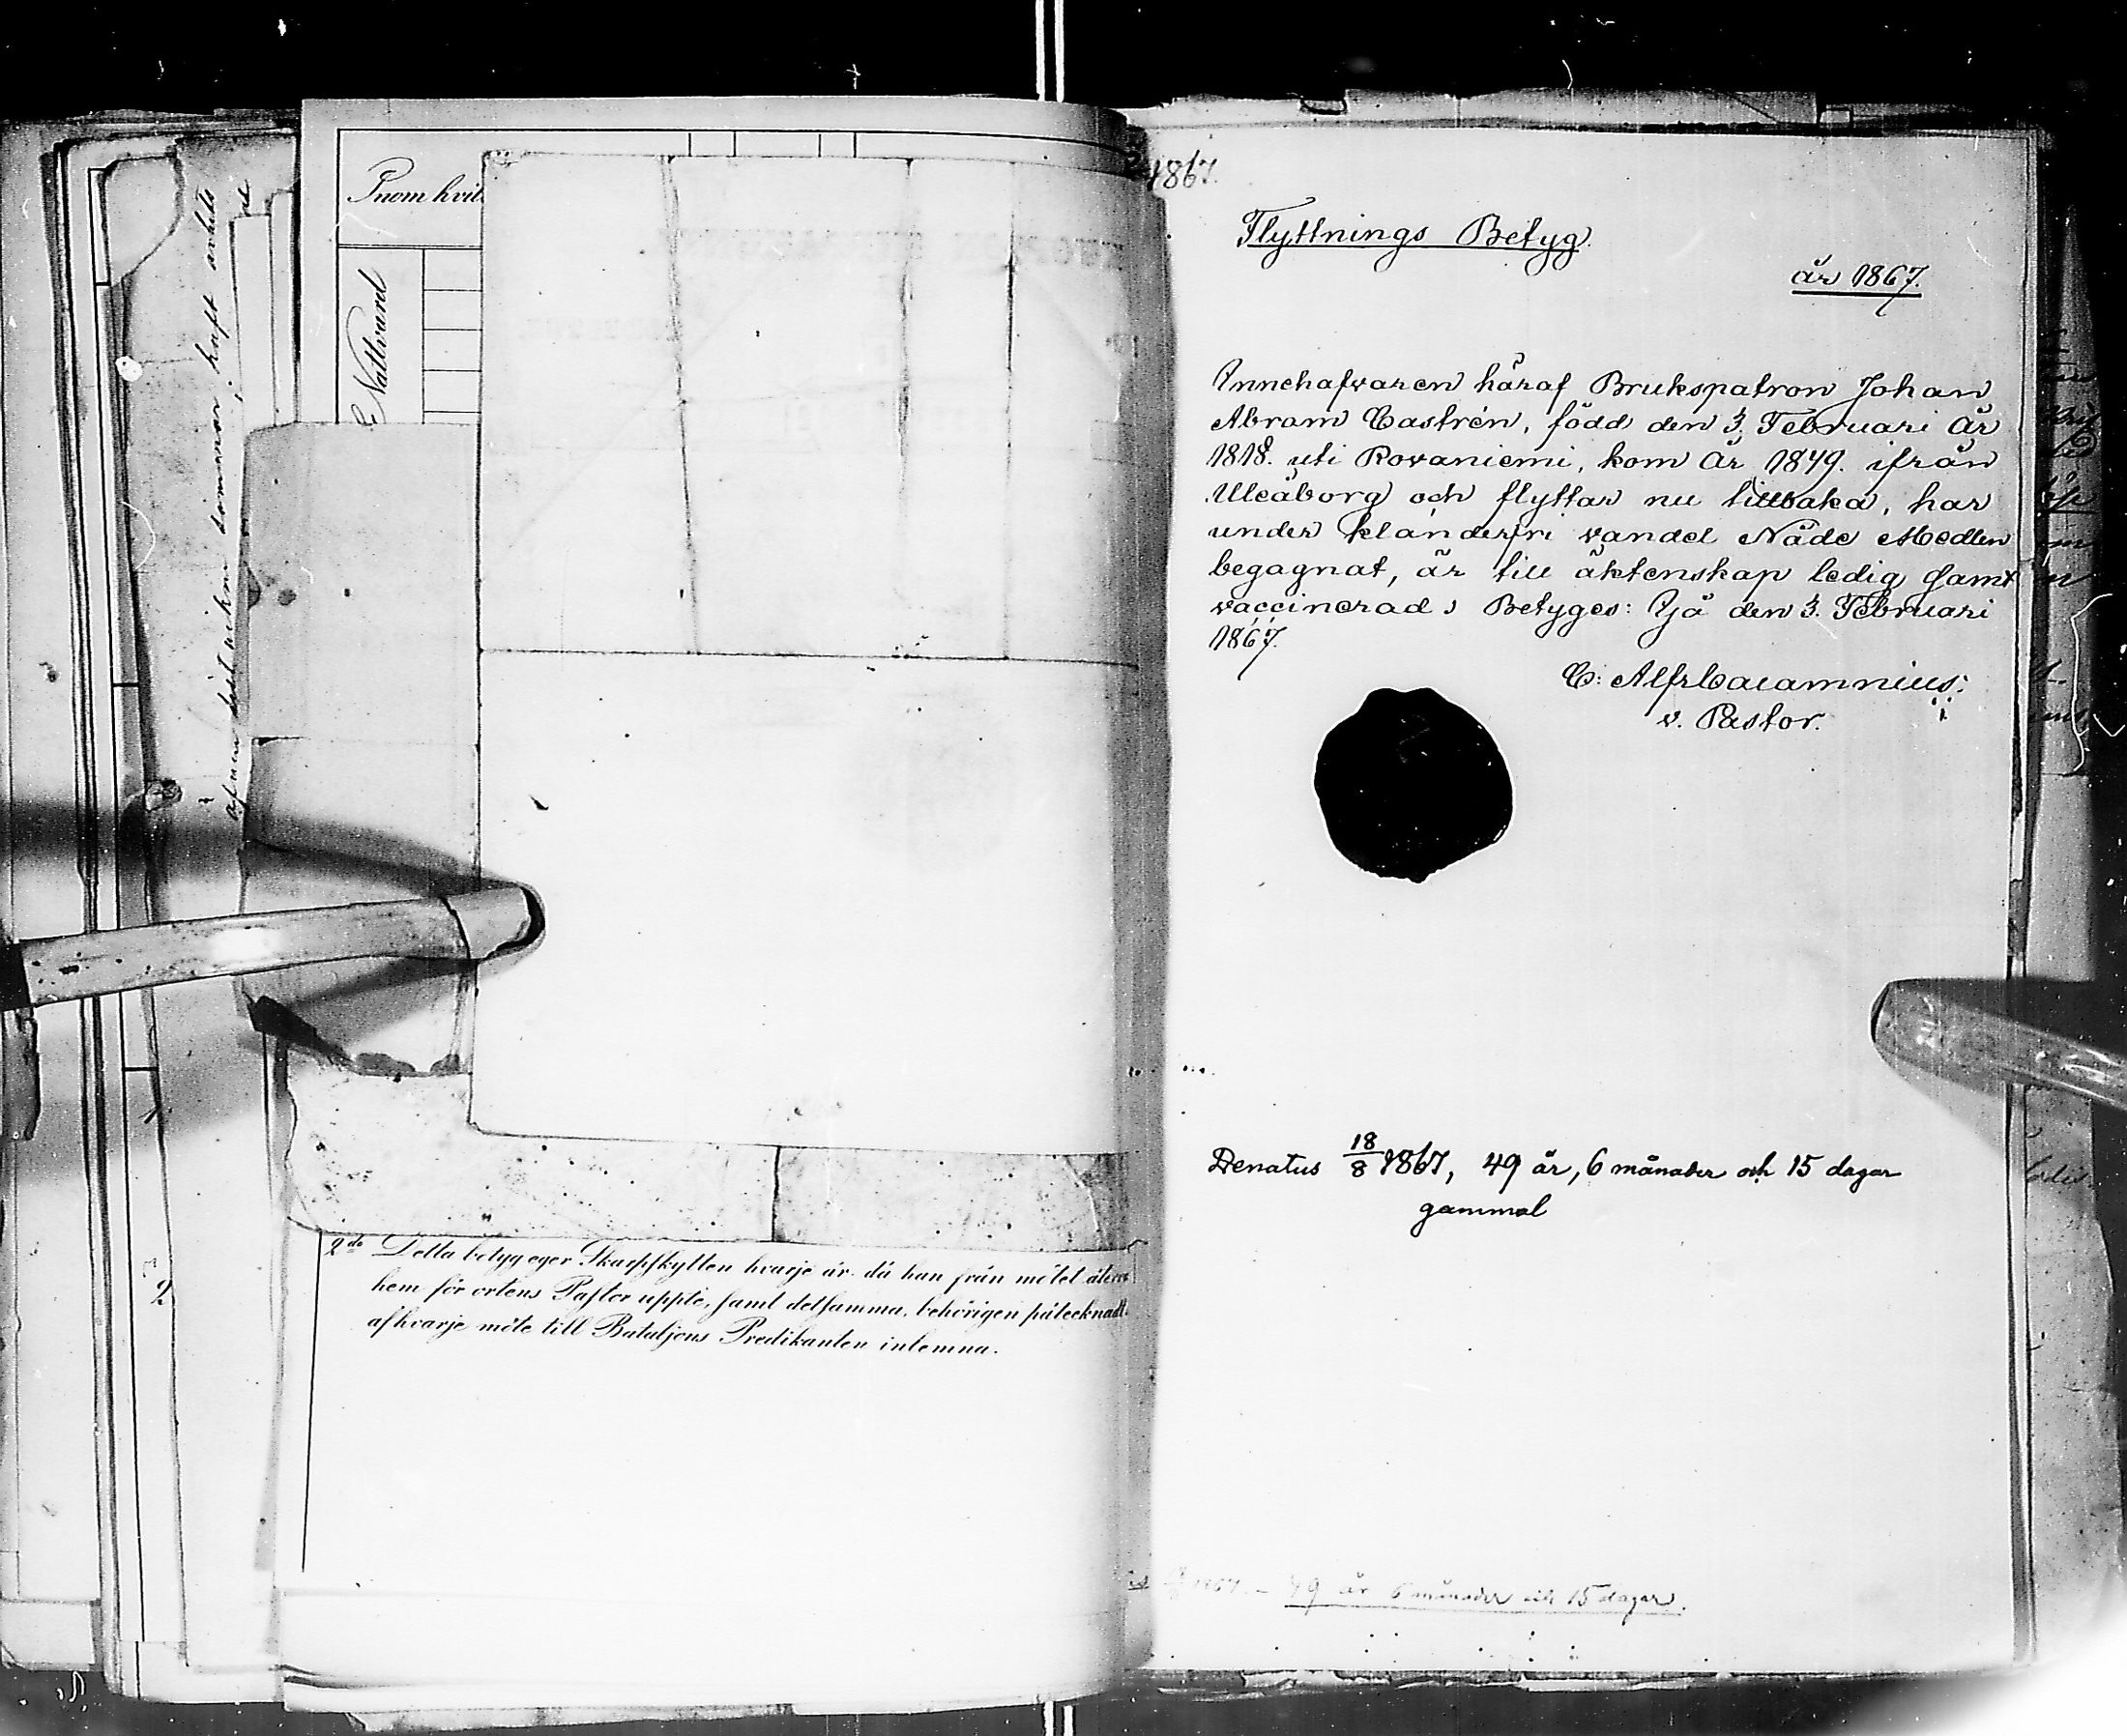 Inom hvil
Nattvard
2do Detta betyg eger Skarpskytten hvarje år då han från mötet
hem för ortens Pastor uppte, samt detsamma, behörigen påtecknadt
af hvarje möte till Bataljons Predikanten inlemna.
1867.
Flyttnings Betyg.
år 1867.
Innehafvaren häraf Brukspatron Johan
Abram Castrén, född den 3. Februari År
1818. uti Rovaniemi, kom År 1849. ifrån
Uleåborg och flyttar nu tillbaka, har
under klanderfri vandel Nåde Medlen
begagnat, är till äktenskap ledig samt
vaccinerad; Betyges: Ijå den 3. Februari
1867.
C: Alfr Calamnius:
v. Pastor.
Denatus 18/8 1867, 49 år, 6 månader och 15 dagar
gammal
1867 – 49 år 6 månader och 15 dagar.
2